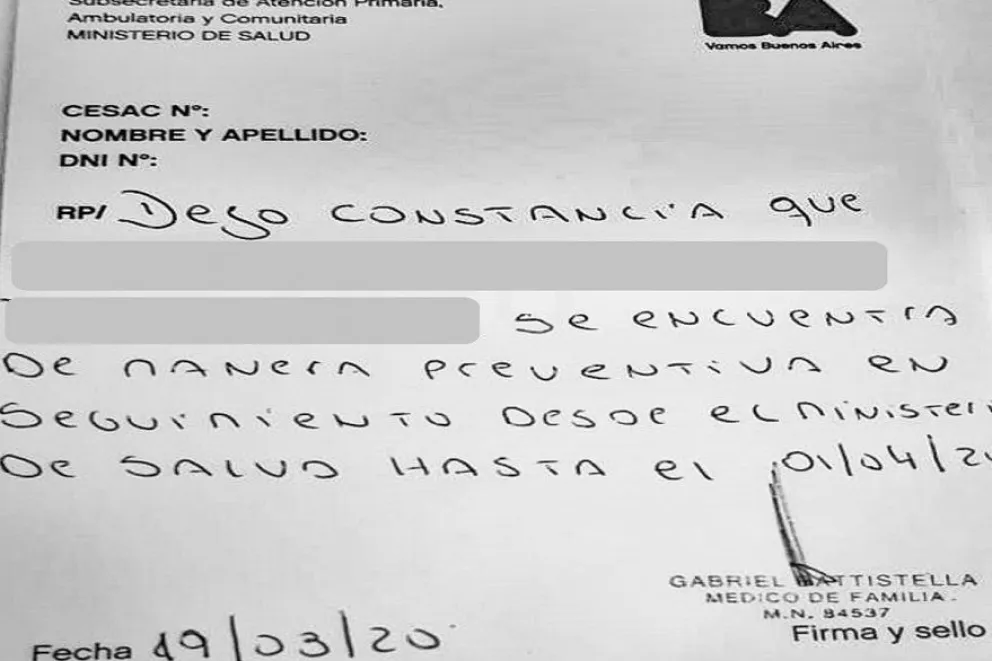 Subsecretaría de Atención Primaria,
Ambulatoria y Comunitaria
MINISTERIO DE SALUD
BA
Vamos Buenos Aires
CESAC Nº:
NOMBRE Y APELLIDO:
DNI Nº:
RP/ Dejo CONSTANCIA que
se encuentra
De manera preventiva en
seguimiento desde el ministeri
De SALUD HASTA el 01/04/20
GABRIEL BATTISTELLA
MEDICO DE FAMILIA.
M.N. 84537
Firma y sello
Fecha 19/03/20